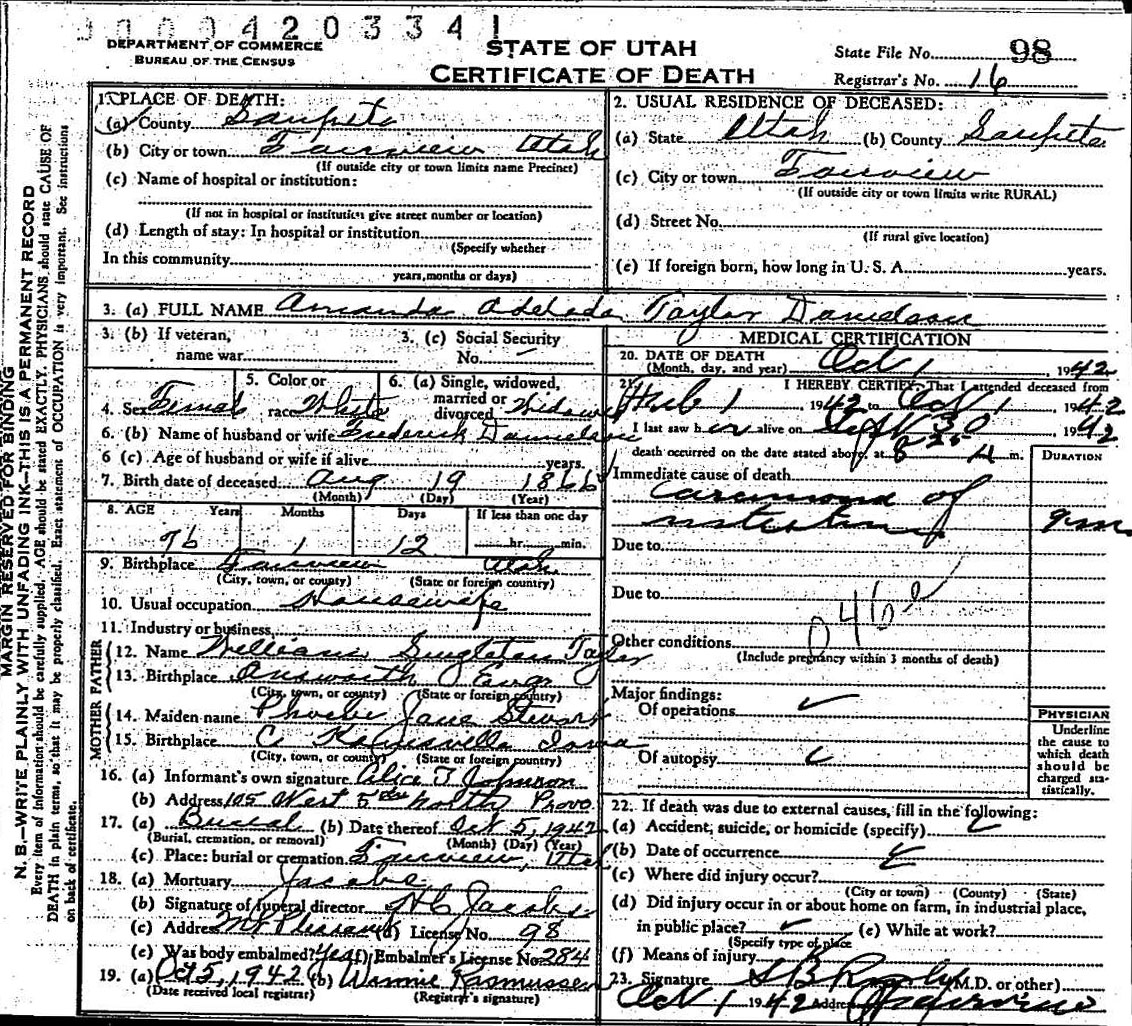 00004203341
DEPARTMENT OF COMMERCE
BUREAU OF THE CENSUS
STATE OF UTAH
CERTIFICATE OF DEATH
State File No. 98
Registrar's No. 16
MARGIN RESERVED FOR BINDING
N. B.—WRITE PLAINLY WITH UNFADING INK—THIS IS A PERMANENT RECORD
Every item of information should be carefully supplied. AGE should be stated EXACTLY. PHYSICIANS should state CAUSE OF
DEATH in plain terms, so that it may be properly classified. Exact statement of OCCUPATION is very important. See instructions
on back of certificate.
1. PLACE OF DEATH:
(a) County Sanpete
(b) City or town Fairview Utah
(If outside city or town limits name Precinct)
(c) Name of hospital or institution:
(If not in hospital or institution give street number or location)
(d) Length of stay: In hospital or institution
(Specify whether
In this community
years, months or days)
2. USUAL RESIDENCE OF DECEASED:
(a) State Utah (b) County Sanpete
(c) City or town Fairview
(If outside city or town limits write RURAL)
(d) Street No.
(If rural give location)
(e) If foreign born, how long in U. S. A. years.
3. (a) FULL NAME Amanda Taylor Danielson
3. (b) If veteran,
name war
3. (c) Social Security
No. —
4. Sex Femal
5. Color or
race White
6. (a) Single, widowed,
married or
divorced Widowed
6. (b) Name of husband or wife Frederick Danielson
6 (c) Age of husband or wife if alive years.
7. Birth date of deceased Aug 19 1866
(Month) (Day) (Year)
8. AGE Years Months Days If less than one day
76 1 12 hr. min.
9. Birthplace Fairview Utah
(City, town, or county) (State or foreign country)
10. Usual occupation Housewife
11. Industry or business
FATHER
12. Name William Singleton Taylor
13. Birthplace Eng
(City, town, or county) (State or foreign country)
MOTHER
14. Maiden name Phoebe Jane Stewart
15. Birthplace Iowa
(City, town, or county) (State or foreign country)
16. (a) Informant's own signature Alice T Johnson
(b) Address 105 West 5 Provo
17. (a) Burial (b) Date thereof Oct 5, 1942
(Burial, cremation, or removal) (Month) (Day) (Year)
(c) Place: burial or cremation Fairview, Utah
18. (a) Mortuary Jacobs
(b) Signature of funeral director H C Jacobs
(c) Address Mt Pleasant (d) License No. 98
(e) Was body embalmed? Yes (f) Embalmer's License No. 284
19. (a) Oct 5, 1942 (b) Winnie Rasmussen
(Date received local registrar) (Registrar's signature)
MEDICAL CERTIFICATION
20. DATE OF DEATH
(Month, day, and year) Oct 1, 1942
21. I HEREBY CERTIFY, That I attended deceased from
Feb 1, 1942 to Oct 1 1942
I last saw her alive on Sept 30 1942
death occurred on the date stated above, at 8 25 A m.
DURATION
Immediate cause of death
carcinoma of
Due to
Due to
046
Other conditions
(Include pregnancy within 3 months of death)
Major findings:
Of operations
Of autopsy
PHYSICIAN
Underline
the cause to
which death
should be
charged sta-
tistically.
22. If death was due to external causes, fill in the following:
(a) Accident, suicide, or homicide (specify)
(b) Date of occurrence
(c) Where did injury occur?
(City or town) (County) (State)
(d) Did injury occur in or about home on farm, in industrial place,
in public place? (e) While at work?
(Specify type of place
(f) Means of injury
23. Signature (M.D. or other)
Oct 1 1942 Address